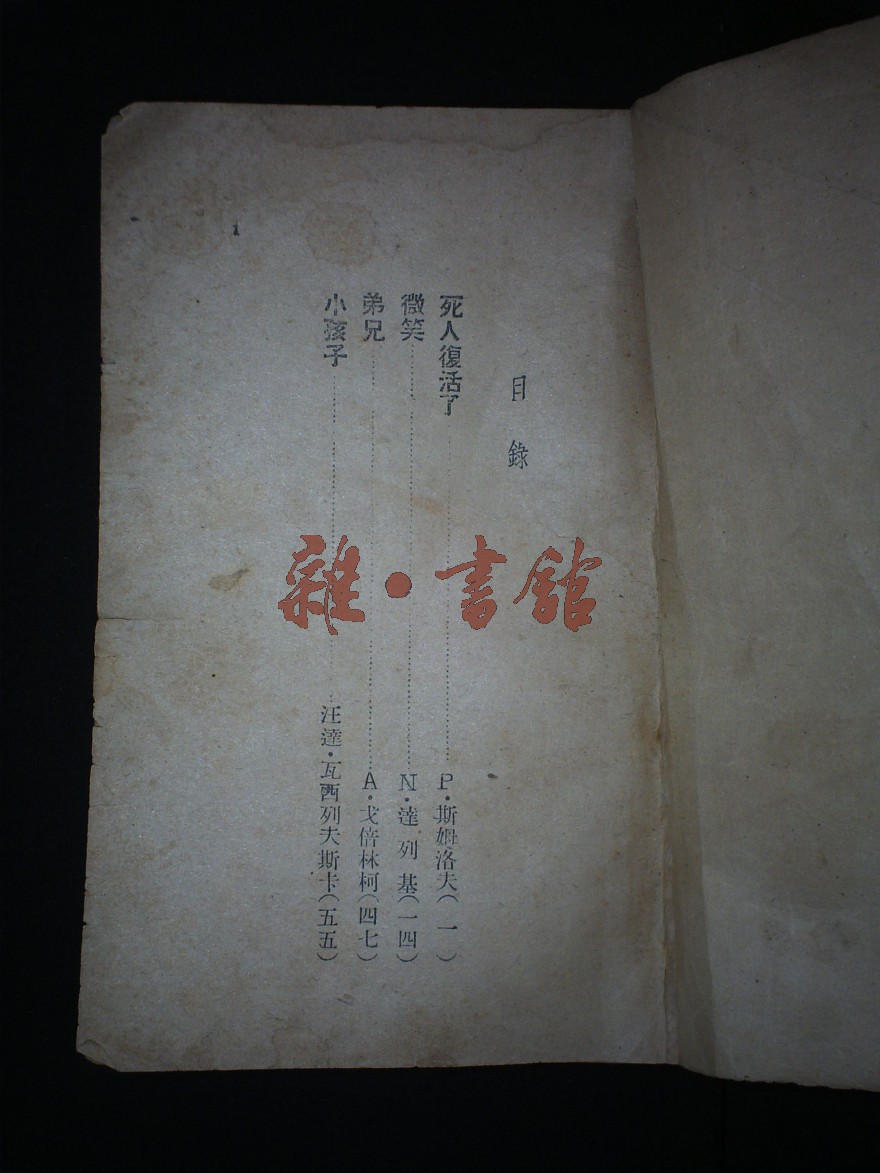 目錄
死人復活了……P·斯姆洛夫(一)
微笑……N·達列基(一四)
弟兄……A·戈倍林柯(四七)
小孩子……汪達·瓦西列夫斯卡(五五)
1
雜·書館